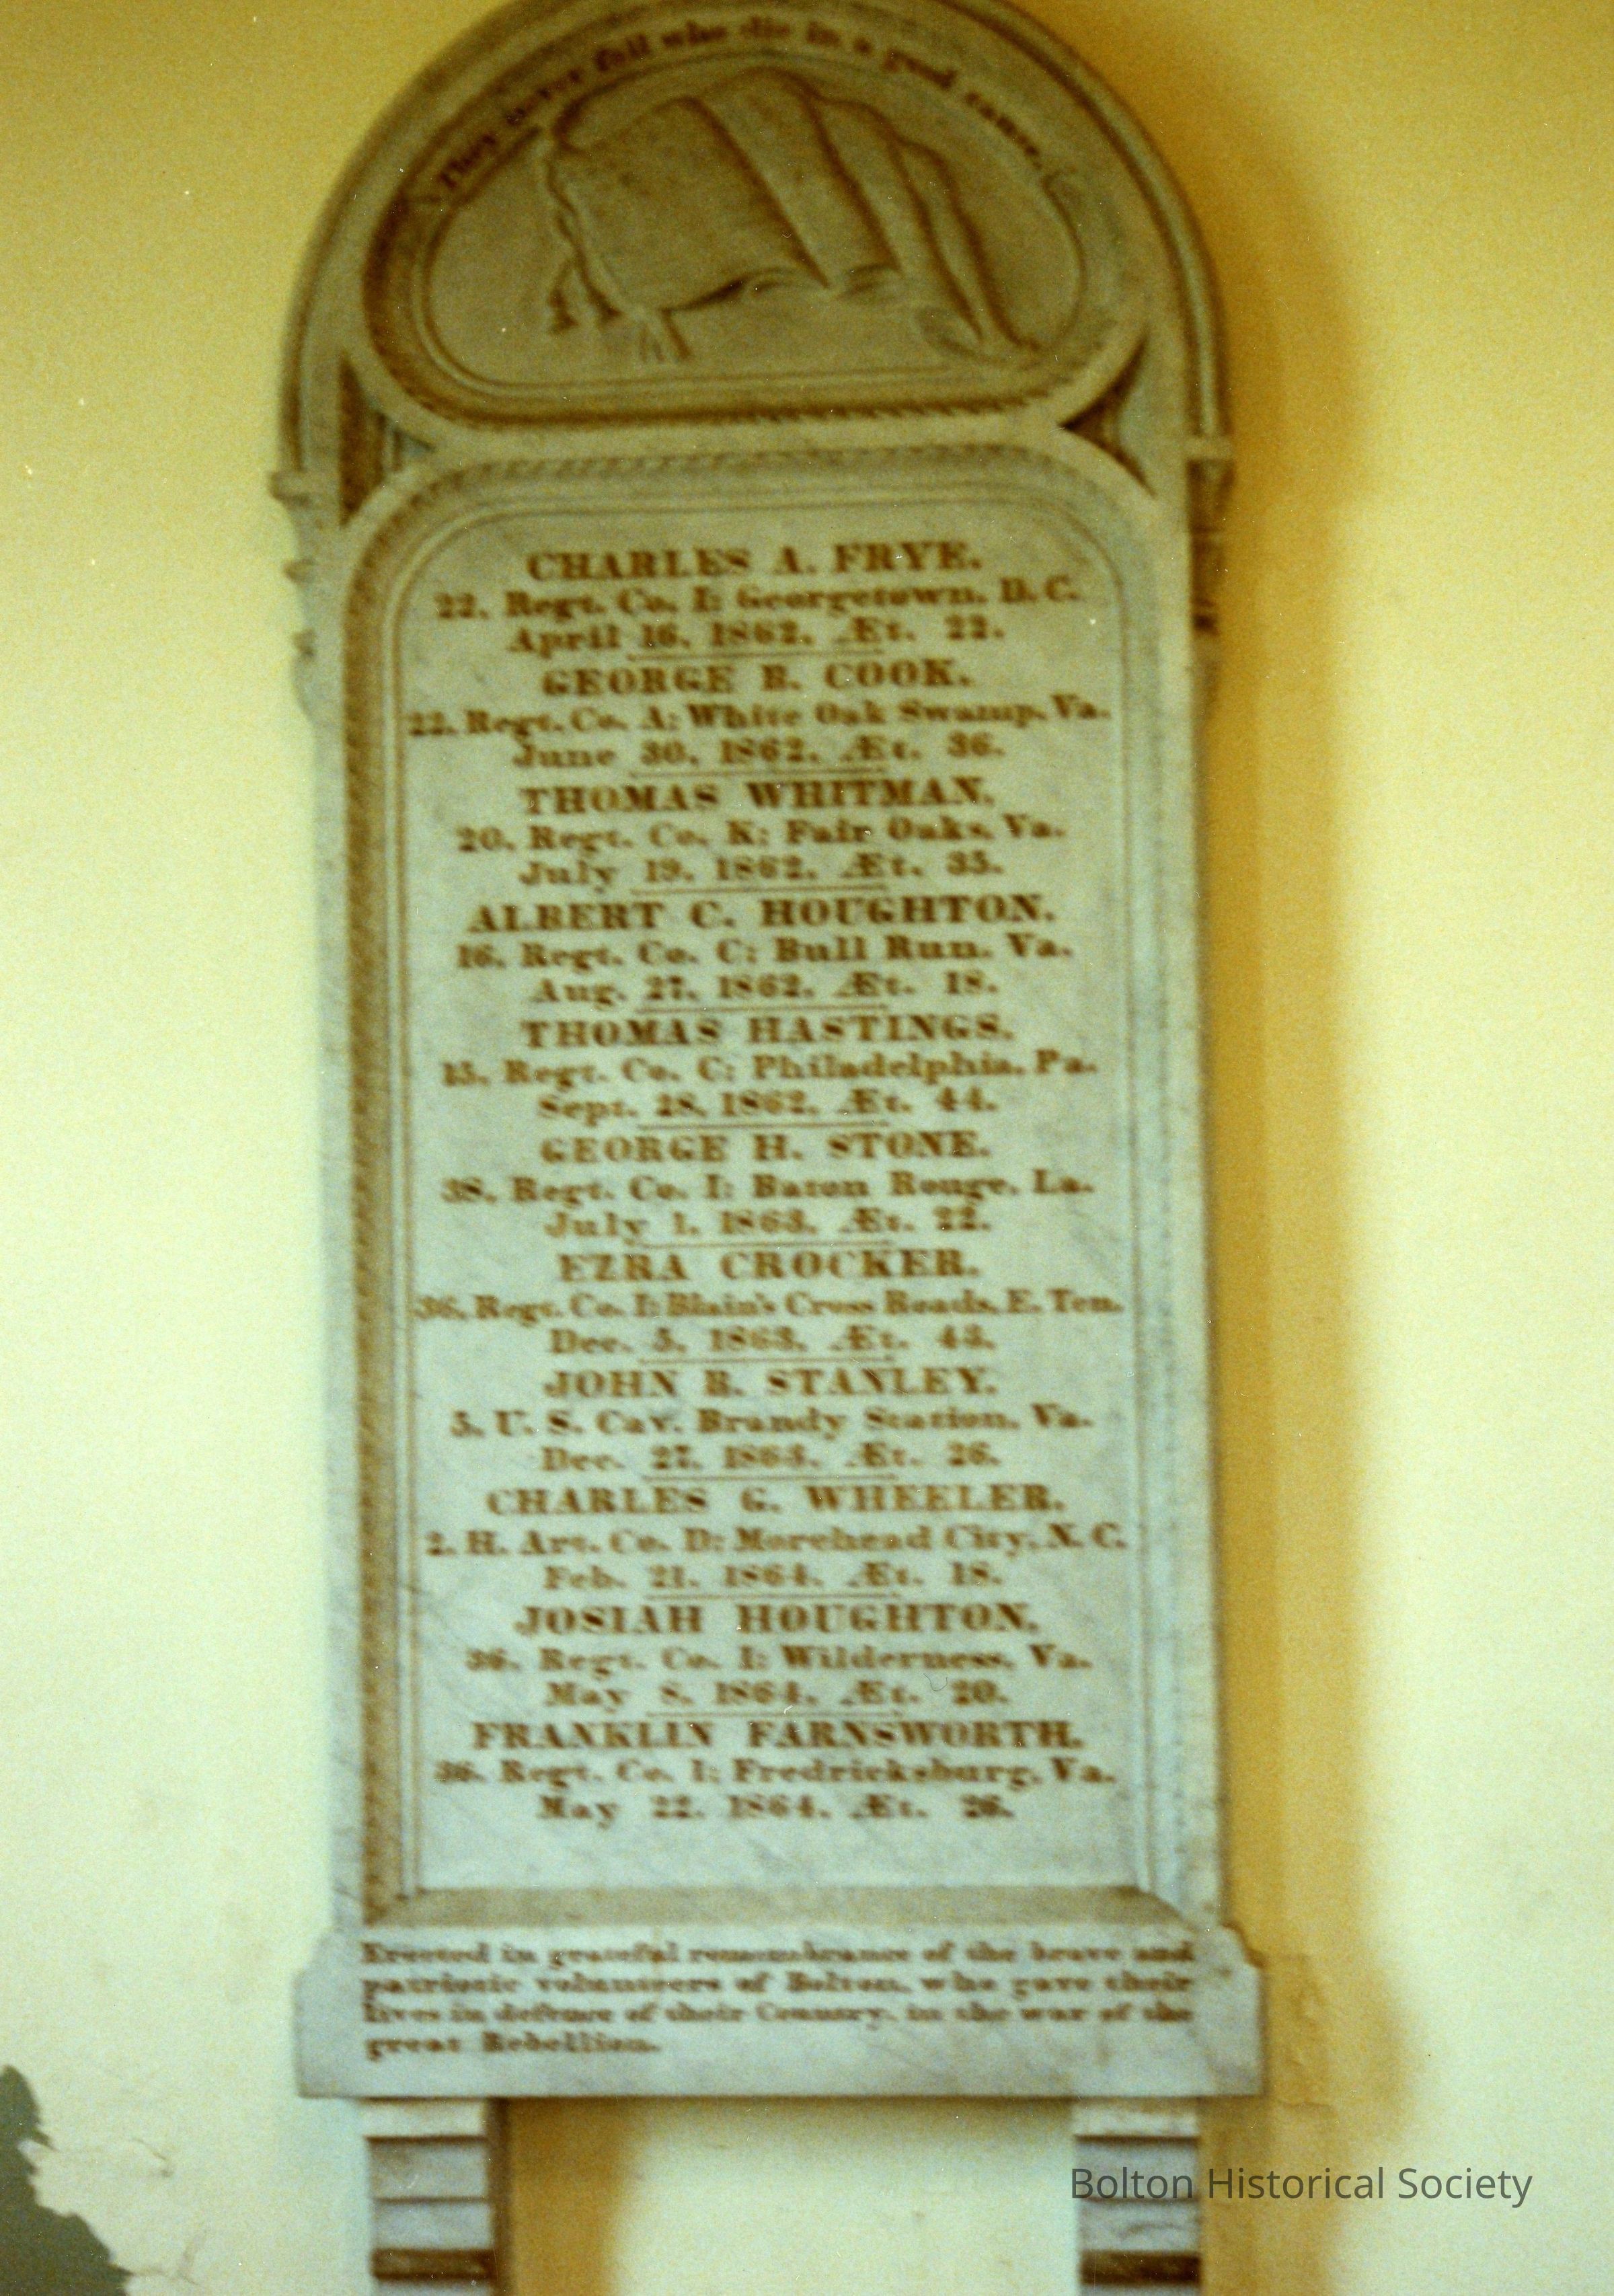 They never fail who die in a good cause.
CHARLES A. FRYE.
22. Regt. Co. I: Georgetown. D. C.
April 16. 1862. Æt. 22.
GEORGE B. COOK.
22. Regt. Co. A: White Oak Swamp. Va.
June 30. 1862. Æt. 36.
THOMAS WHITMAN.
20. Regt. Co. K: Fair Oaks. Va.
July 19. 1862. Æt. 35.
ALBERT C. HOUGHTON.
16. Regt. Co. C: Bull Run. Va.
Aug. 27. 1862. Æt. 18.
THOMAS HASTINGS.
15. Regt. Co. C: Philadelphia. Pa.
Sept. 28. 1862. Æt. 44.
GEORGE H. STONE.
38. Regt. Co. I: Baton Rouge. La.
July 1. 1863. Æt. 22.
EZRA CROCKER.
36. Regt. Co. I: Blain's Cross Roads. E. Ten.
Dec. 5. 1863. Æt. 43.
JOHN B. STANLEY.
5. U. S. Cav. Brandy Station. Va.
Dec. 27. 1863. Æt. 26.
CHARLES G. WHEELER.
2. H. Art. Co. D: Morehead City. N. C.
Feb. 21. 1864. Æt. 18.
JOSIAH HOUGHTON.
36. Regt. Co. I: Wilderness. Va.
May 8. 1864. Æt. 20.
FRANKLIN FARNSWORTH.
36. Regt. Co. I: Fredricksburg. Va.
May 22. 1864. Æt. 26.
Erected in grateful remembrance of the brave and
patriotic volunteers of Bolton, who gave their
lives in defence of their Country, in the war of the
great Rebellion.
Bolton Historical Society